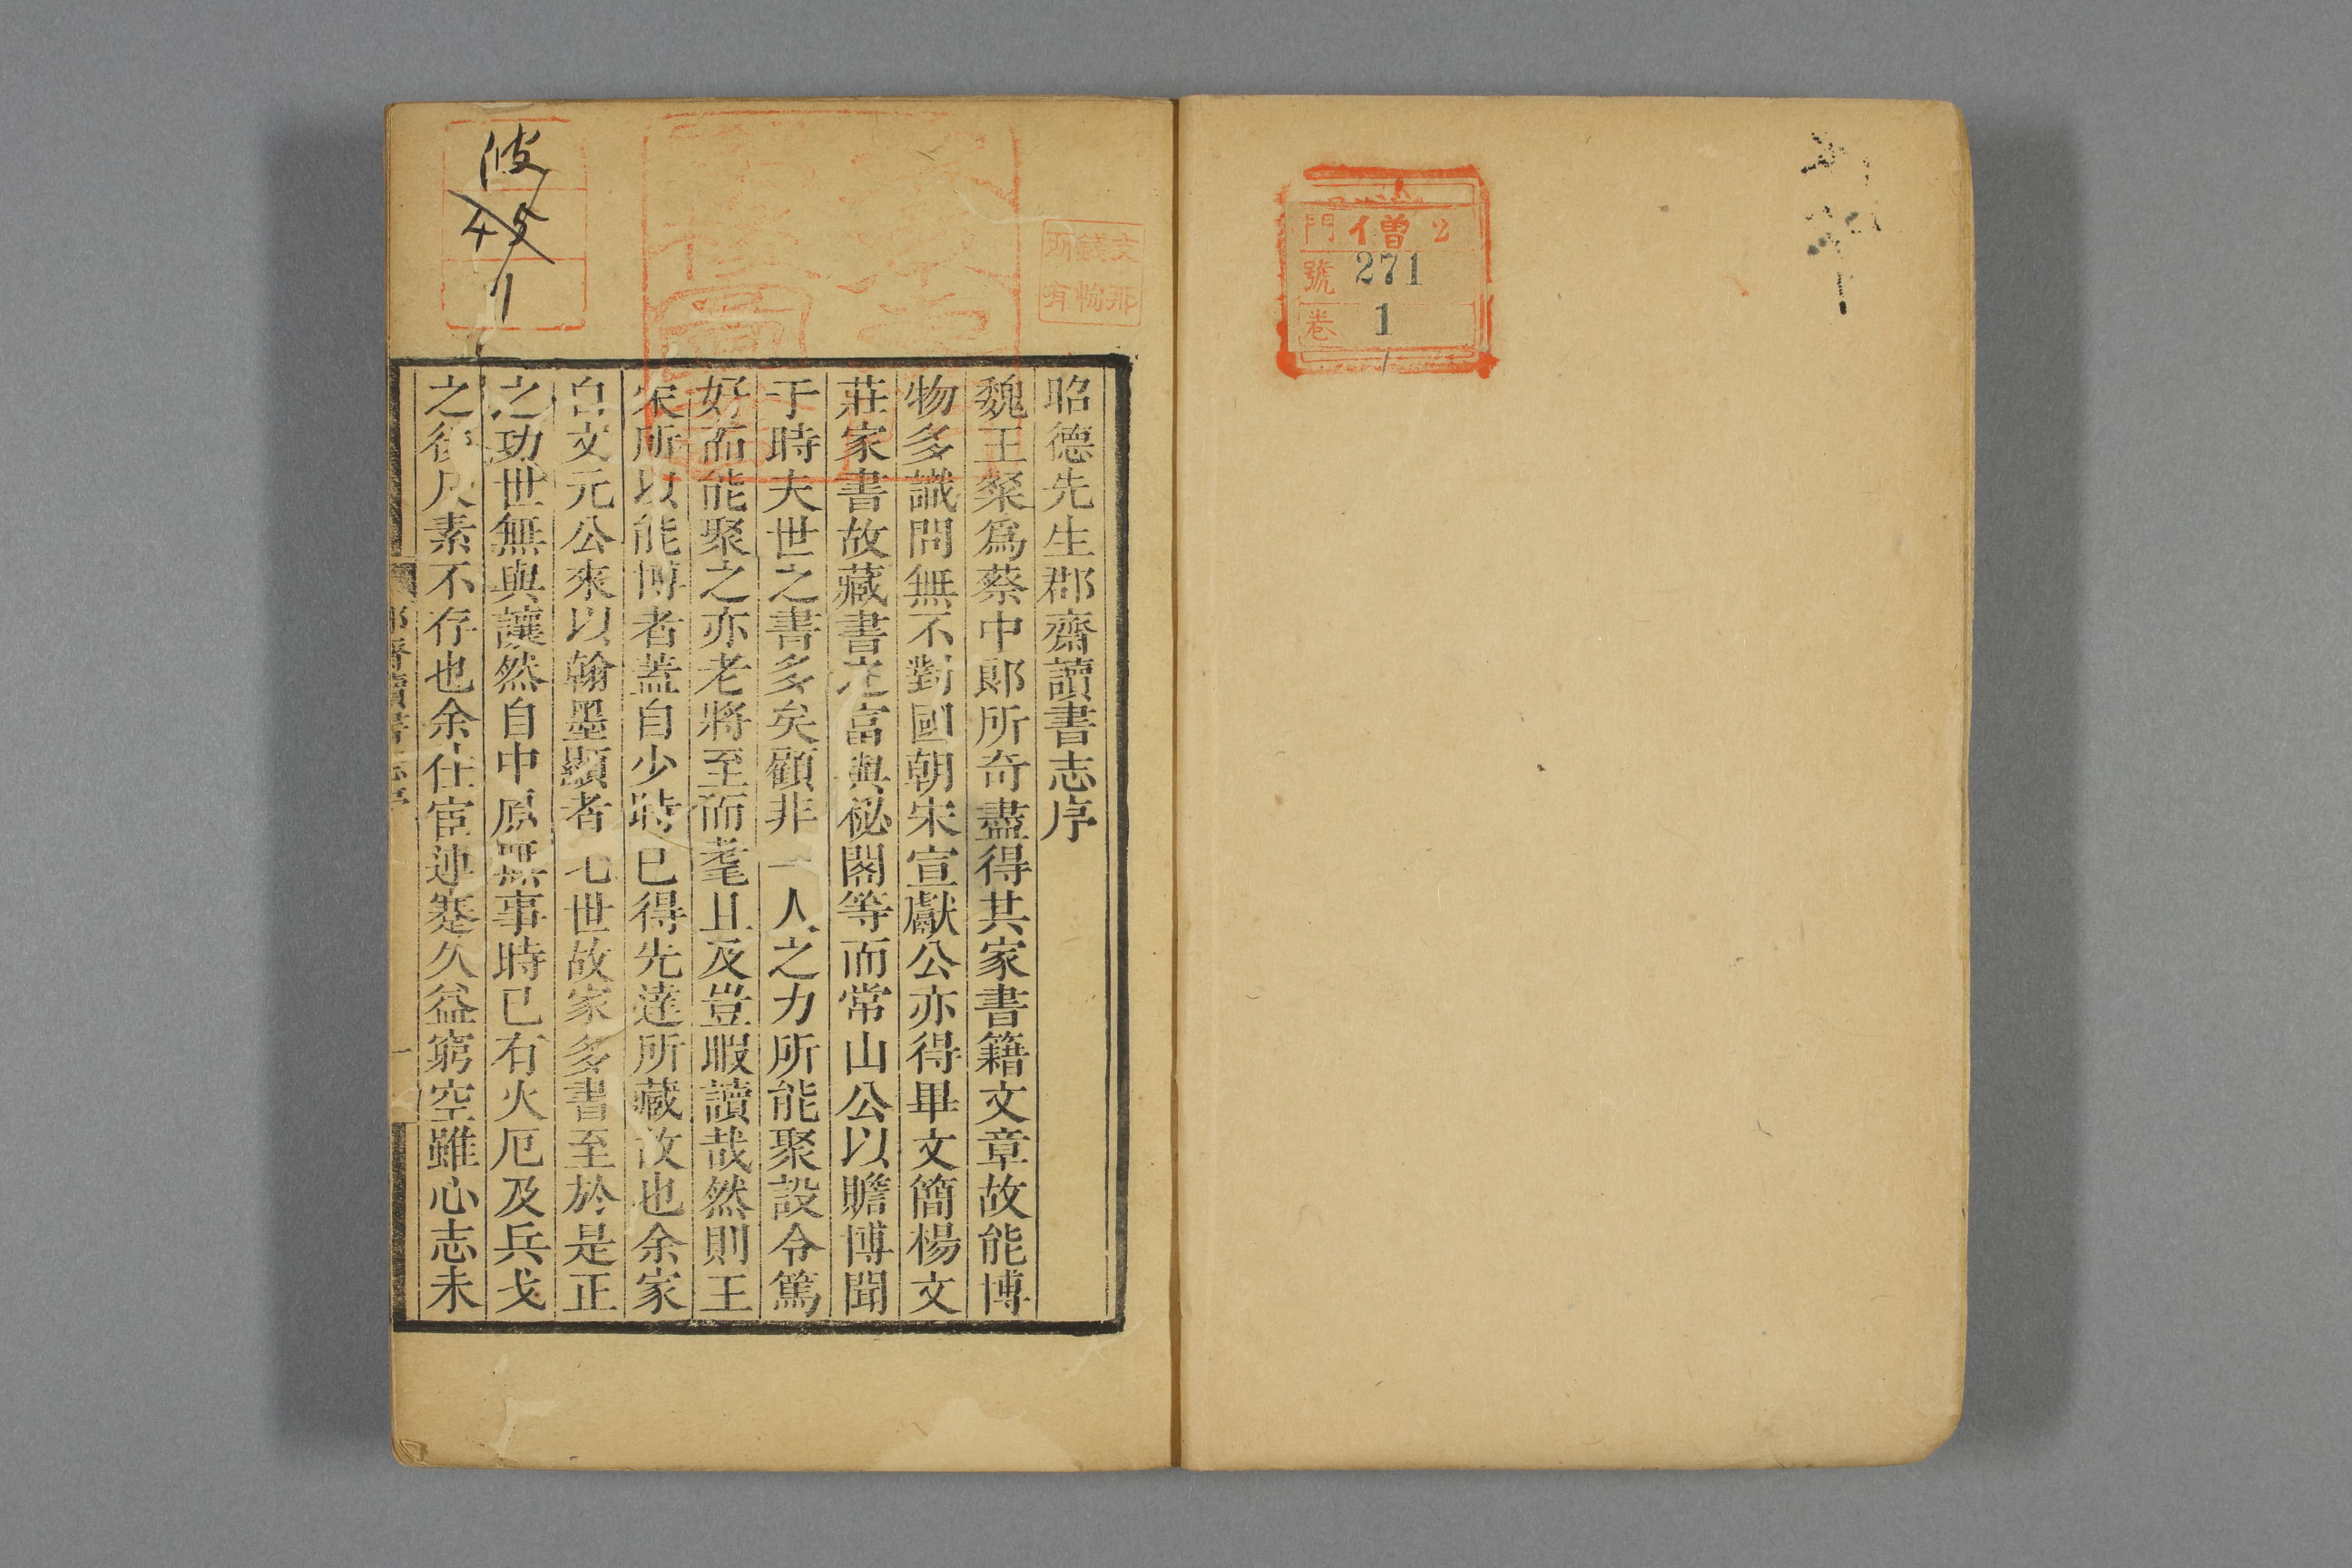 門 僧 2
號 271
卷 1
昭德先生郡齋讀書志序
魏王粲爲蔡中郞所奇盡得其家書籍文章故能博
物多識問無不對國朝宋宣獻公亦得畢文簡楊文
莊家書故藏書之富與祕閣等而常山公以贍博聞
于時夫世之書多矣顧非一人之力所能聚設令篤
好而能聚之亦老將至而耄且及豈暇讀哉然則王
宋所以能博者蓋自少時已得先達所藏故也余家
自文元公來以翰墨顯者七世故家多書至於是正
之功世無與讓然自中原無事時已有火厄及兵戈
之後尺素不存也余仕宦連蹇久益窮空雖心志未
郡齋讀書志序
一